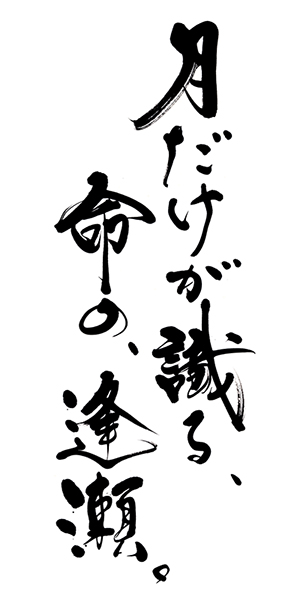 月だけが識る、
命の、逢瀬。